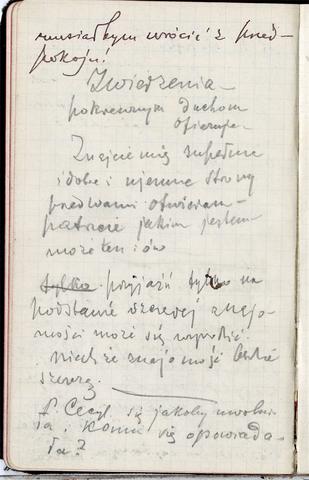 musiałbym wrócić z przed-
pokoju!
Zwierzenia
pokrewnym duchom
ofiaruję.
Znajcie mię zupełnie
i dobre i ujemne strony
przed wami otwieram -
patrzcie jakim jestem
może ten i ów
tylko przyjaźń tylko na
podstawie szczerej znajo-
mości może się wyrobić
niechże znajomość będzie
szczerą.
P. Cecyl. się jakoby
ła. Komu się opowiada-
ła?